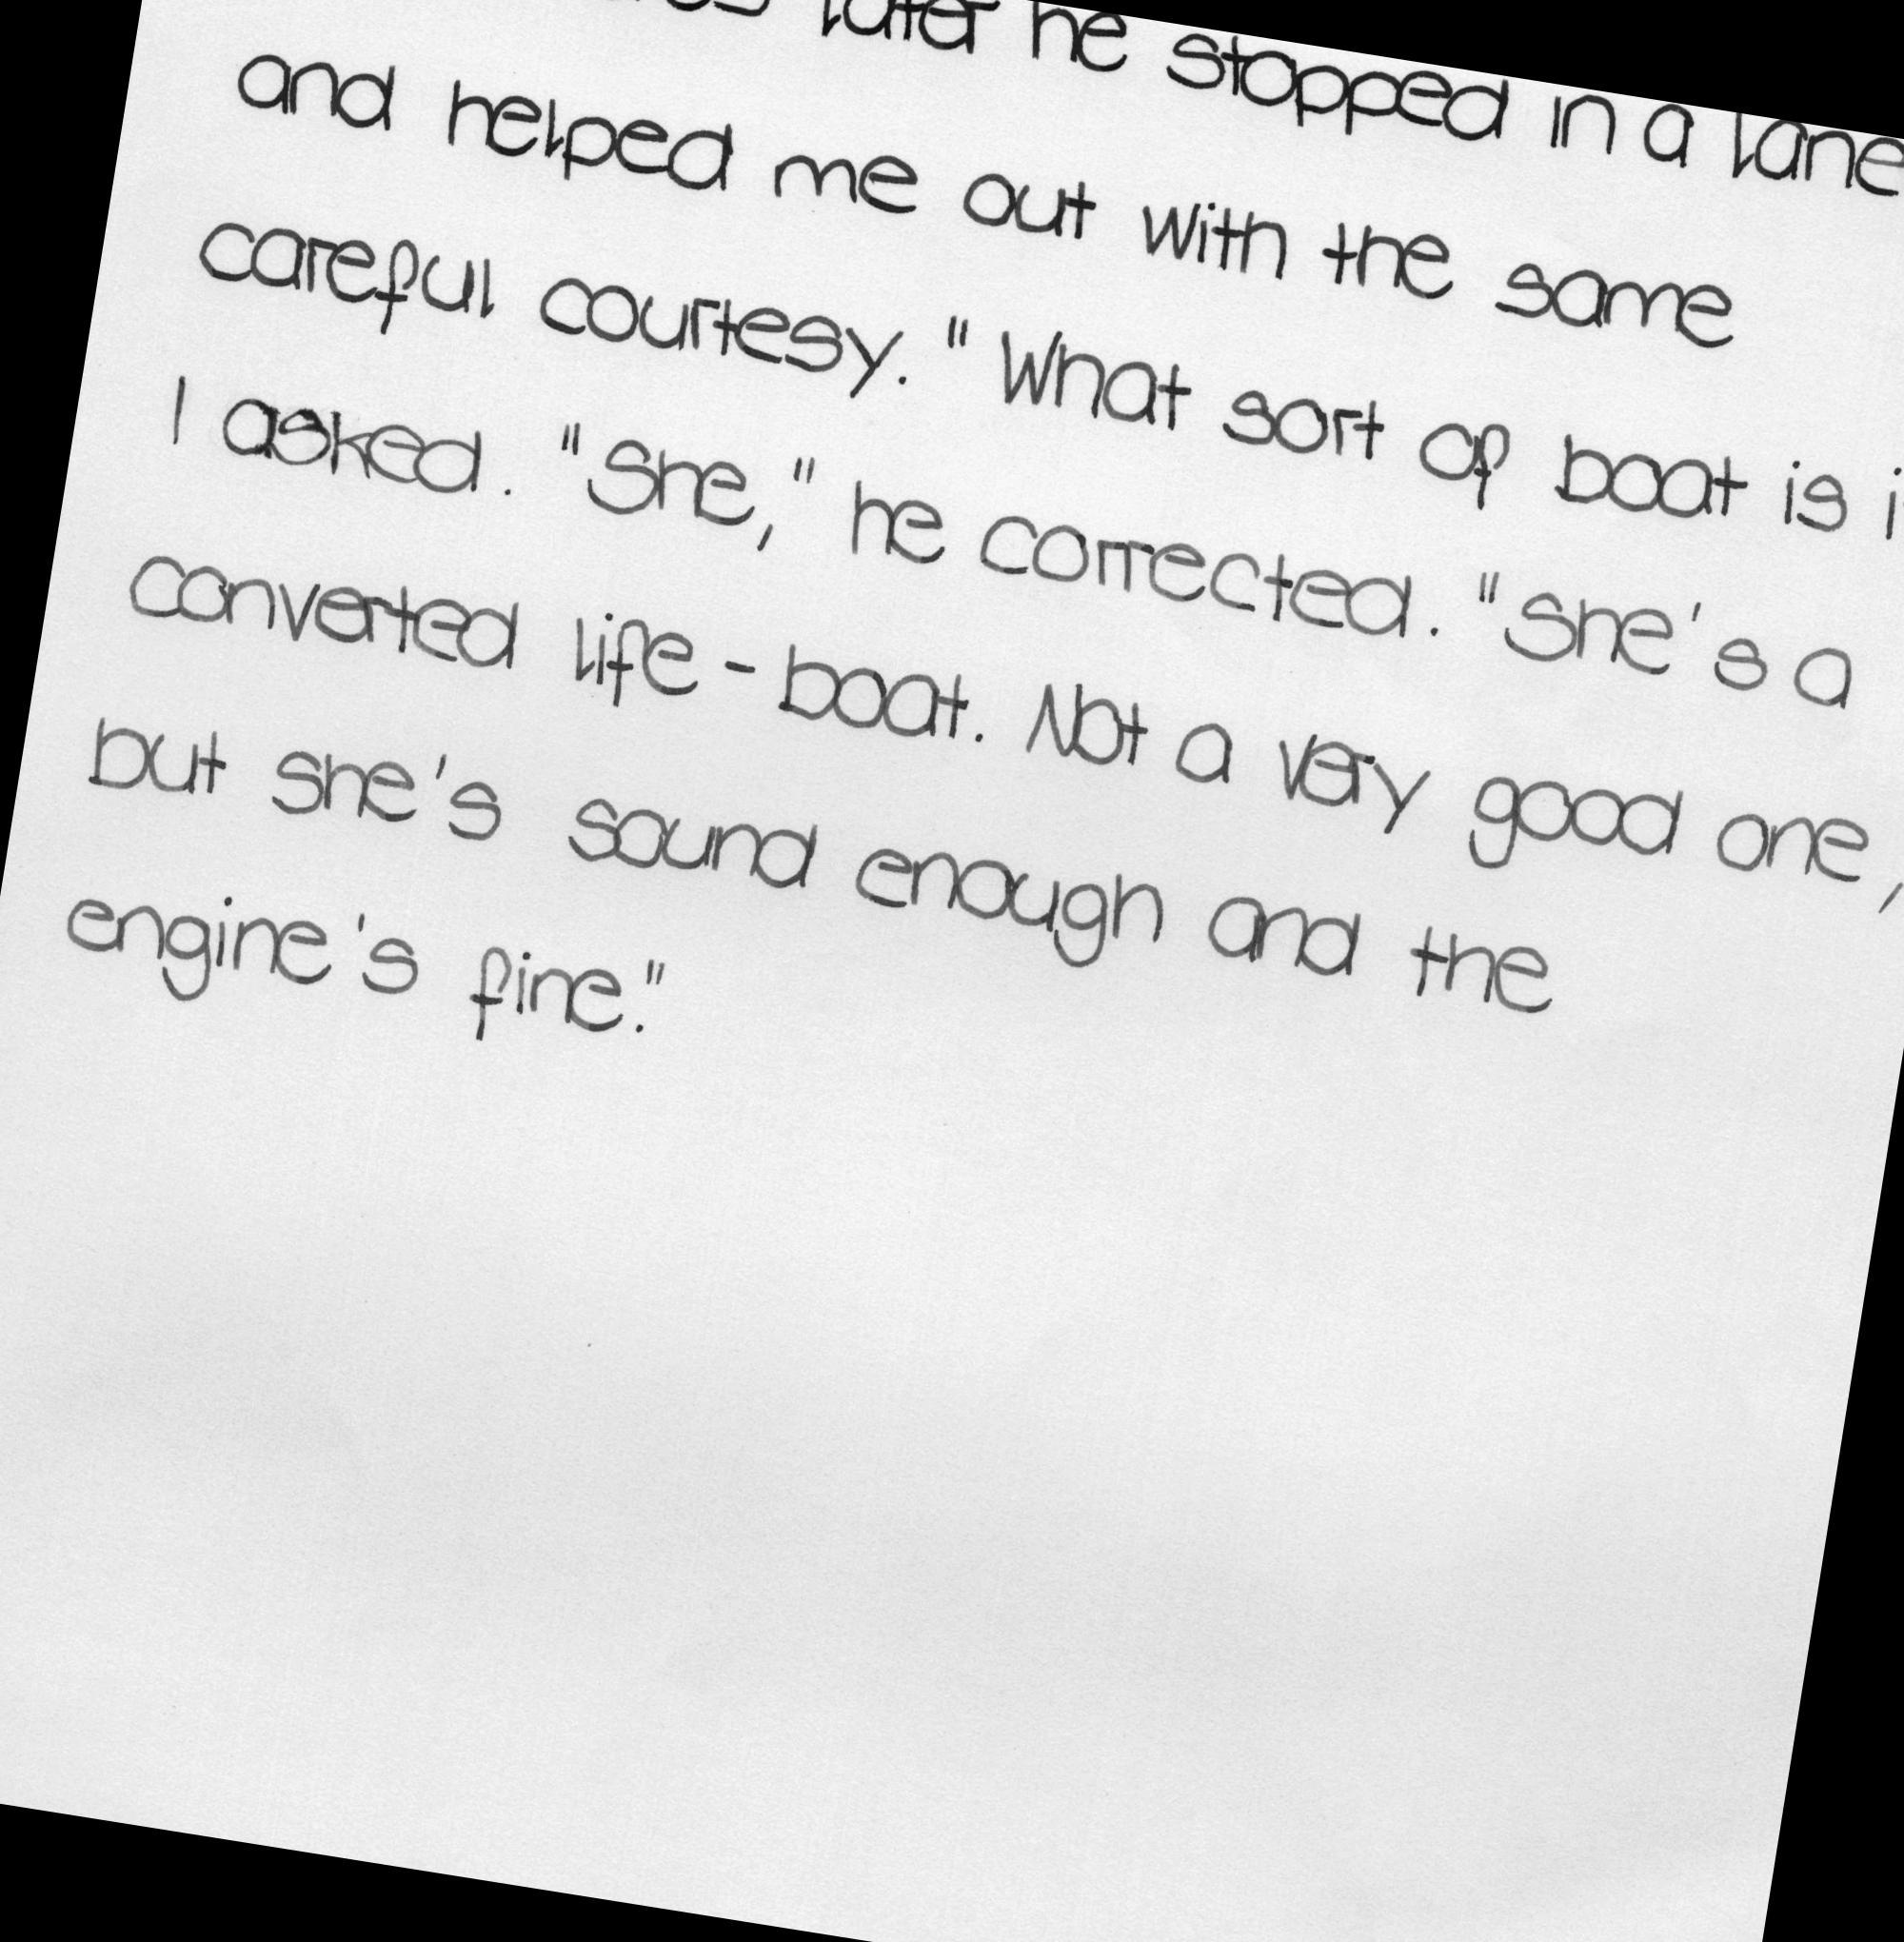 later he stopped in a lane
and helped me out with the same
careful courtesy. "What sort of boat is
I asked. "She," he corrected. "She's a
converted life-boat. Not a very good one,
but she's sound enough and the
engine's fine."